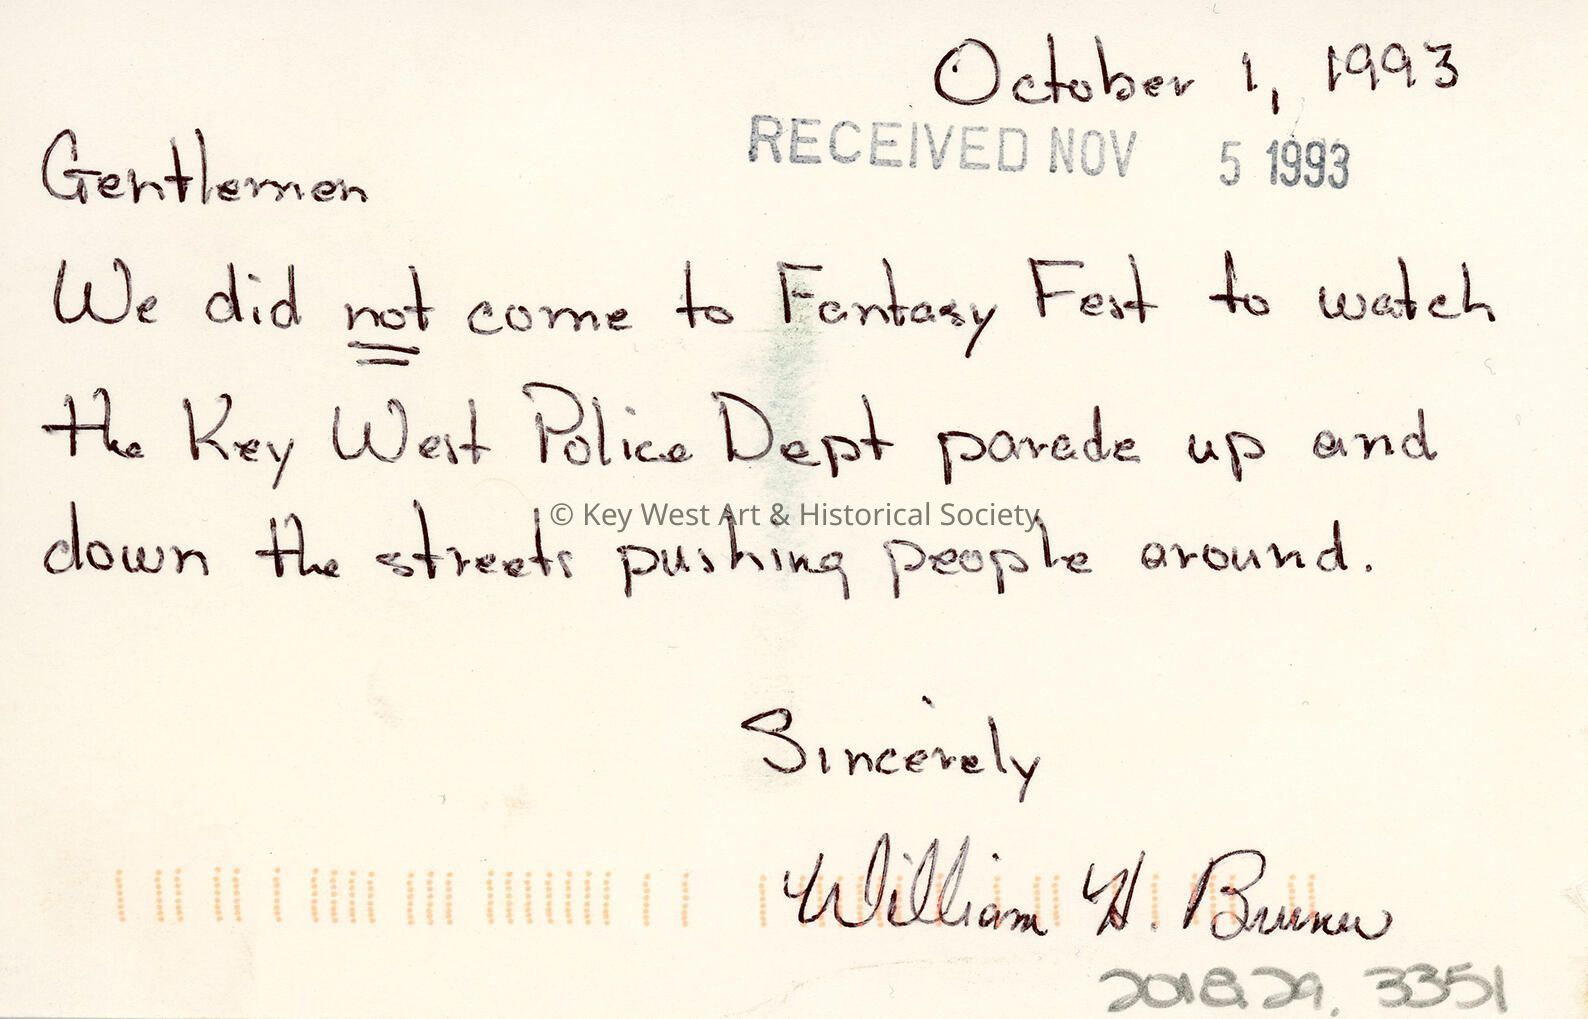 October 1, 1993
RECEIVED NOV 5 1993
Gentlemen
We did not come to Fantasy Fest to watch
the Key West Police Dept parade up and
© Key West Art & Historical Society
down the streets pushing people around.
Sincerely
William H.
2018.29.3351